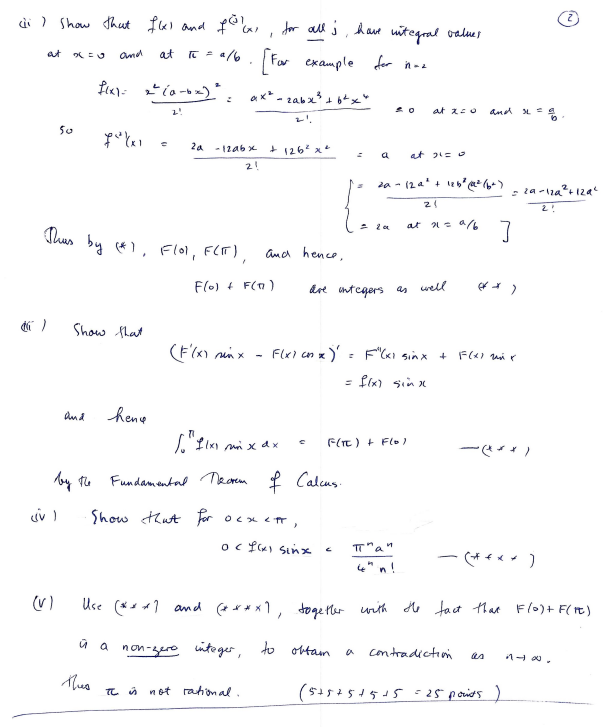 (2)
(ii) Show that f(x) and f^(j)(x), for all j, have integral values
at x=0 and at π = a/b. [For example for n=2
f(x) = x²(a-bx)²/2! = ax² - 2abx³ + b²x⁴/2! = 0 at x=0 and x = a/b.
So f^(2)(x) = 2a - 12abx + 12b²x²/2! = a at x=0
{ = 2a - 12a² + 12b²(a²/b²)/2! = 2a - 12a² + 12a²/2!
= 2a at x = a/b ]
Thus by (*), F(0), F(π), and hence,
F(0) + F(π) are integers as well (**)
(iii) Show that
(F'(x) sin x - F(x) cos x)' = F''(x) sin x + F(x) sin x
= f(x) sin x
and hence
∫₀^π f(x) sin x dx = F(π) + F(0) —(***)
by the Fundamental Theorem of Calcus.
(iv) Show that for 0<x<π,
0 < f(x) sin x < πⁿaⁿ/4ⁿ n! —(****)
(v) Use (***) and (****), together with the fact that F(0)+F(π)
is a non-zero integer, to obtain a contradiction as n→∞.
Thus π is not rational. (5+5+5+5+5 = 25 points)